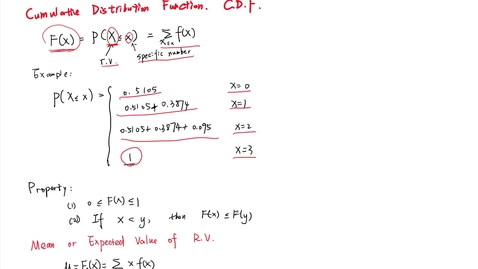 Cumulative Distribution Function. C.D.F.
F(x) = P(X ≤ x) = Σ_{X≤x} f(x)
r.v. specific number
Example:
P(X ≤ x) = { 0.5105 x=0
0.5105 + 0.3874 x=1
0.5105 + 0.3874 + 0.095 x=2
1 x=3
Property:
(1) 0 ≤ F(x) ≤ 1
(2) If x < y, then F(x) ≤ F(y)
Mean or Expected Value of R.V.
μ = E(x) = Σ x f(x)